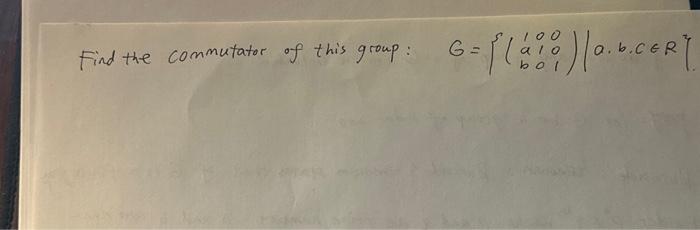 Find the commutator of this group: G = { ( 1 0 0
a 1 0
b 0 1 ) | a. b. c ∈ R }.